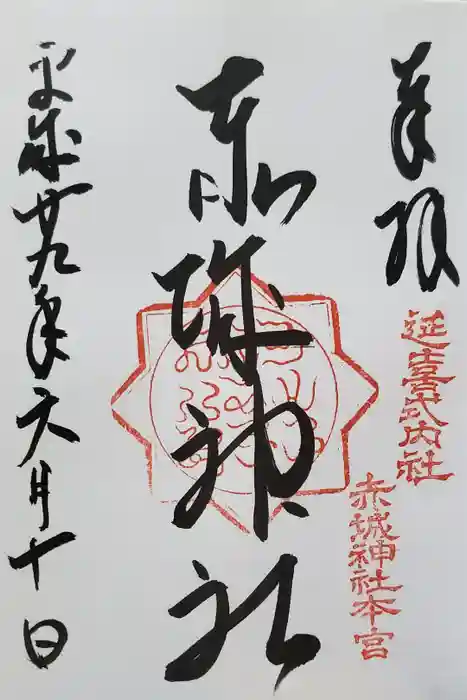 奉拝
延喜式内社
赤城神社本宮
赤城神社
平成廿九年六月十日